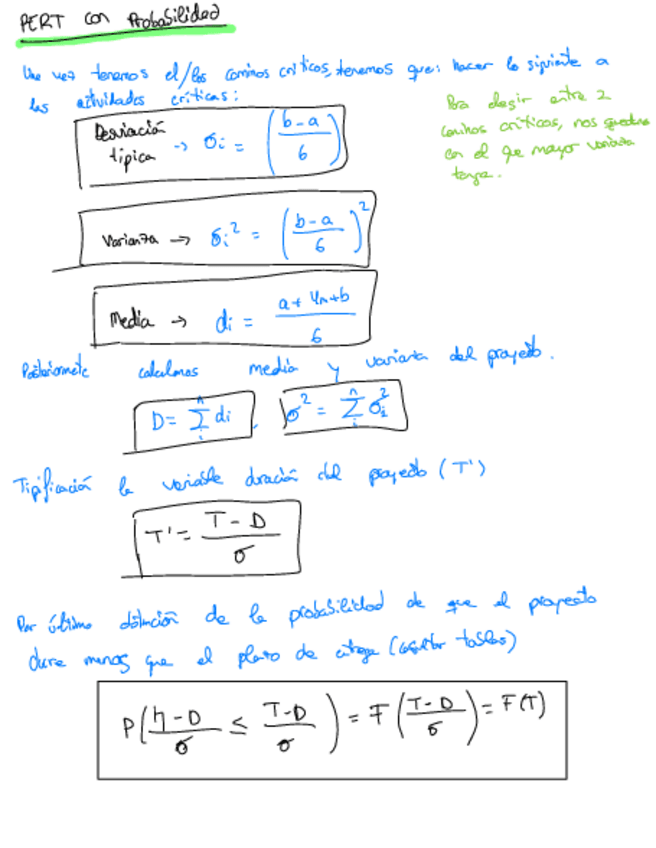 PERT con Probabilidad
Una vez tenemos el/los caminos críticos, tenemos que: hacer lo siguiente a
las actividades críticas:
Para elegir entre 2
caminos críticos, nos quedamos
con el que mayor varianza
tenga.
Desviación típica → σi = ((b-a)/6)
Varianza → σi² = ((b-a)/6)²
Media → di = (a+4m+b)/6
Posteriormente calculamos media y varianza del proyecto.
D = Σ di , σ² = Σ σi²
Tipificación la variable duración del proyecto (T')
T' = (T-D)/σ
Por último obtención de la probabilidad de que el proyecto
dure menos que el plazo de entrega (consultar tablas)
P((η-D)/σ ≤ (T-D)/σ) = F((T-D)/σ) = F(T)